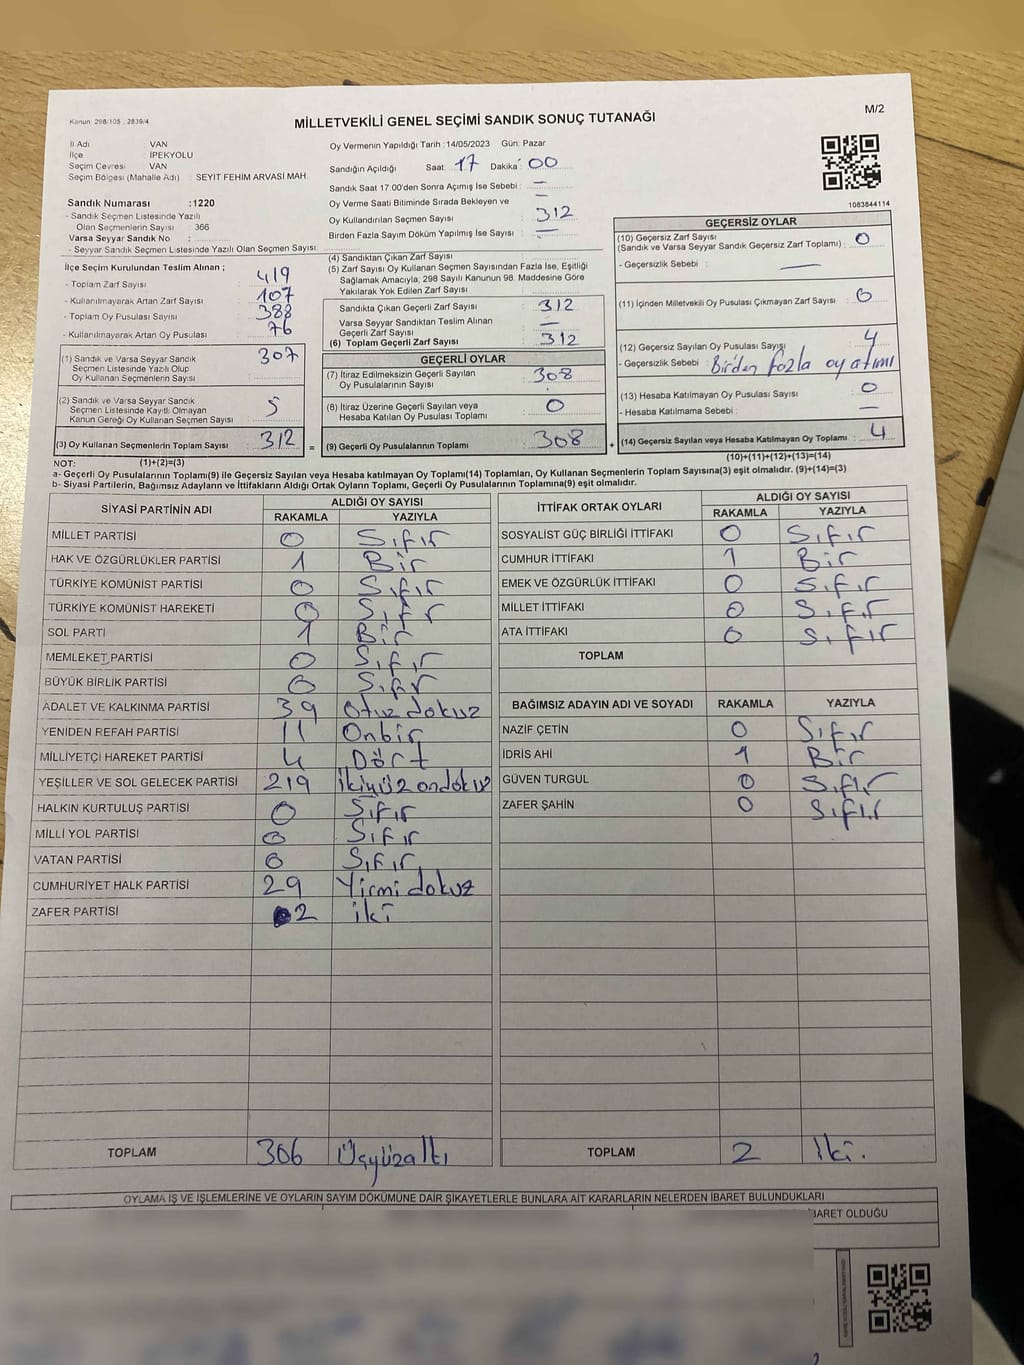 Kanun: 298/105 , 2839/4
M/2
MİLLETVEKİLİ GENEL SEÇİMİ SANDIK SONUÇ TUTANAĞI
İl Adı : VAN
İlçe : İPEKYOLU
Seçim Çevresi : VAN
Seçim Bölgesi (Mahalle Adı) : SEYİT FEHİM ARVASİ MAH.
Sandık Numarası :1220
- Sandık Seçmen Listesinde Yazılı
Olan Seçmenlerin Sayısı : 366
Varsa Seyyar Sandık No :
- Seyyar Sandık Seçmen Listesinde Yazılı Olan Seçmen Sayısı:
Oy Vermenin Yapıldığı Tarih :14/05/2023 Gün: Pazar
Sandığın Açıldığı Saat: 17 Dakika: 00
Sandık Saat 17:00'den Sonra Açımış İse Sebebi : —
Oy Verme Saati Bitiminde Sırada Bekleyen ve —
Oy Kullandırılan Seçmen Sayısı : 312
Birden Fazla Sayım Döküm Yapılmış İse Sayısı : —
1083844114
İlçe Seçim Kurulundan Teslim Alınan ;
- Toplam Zarf Sayısı : 419
- Kullanılmayarak Artan Zarf Sayısı : 107
- Toplam Oy Pusulası Sayısı : 388
- Kullanılmayarak Artan Oy Pusulası : 76
(1) Sandık ve Varsa Seyyar Sandık : 307
Seçmen Listesinde Yazılı Olup
Oy Kullanan Seçmenlerin Sayısı
(2) Sandık ve Varsa Seyyar Sandık
Seçmen Listesinde Kayıtlı Olmayan : 5
Kanun Gereği Oy Kullanan Seçmen Sayısı
(3) Oy Kullanan Seçmenlerin Toplam Sayısı : 312
(4) Sandıktan Çıkan Zarf Sayısı :
(5) Zarf Sayısı Oy Kullanan Seçmen Sayısından Fazla İse, Eşitliği
Sağlamak Amacıyla, 298 Sayılı Kanunun 98. Maddesine Göre
Yakılarak Yok Edilen Zarf Sayısı :
Sandıkta Çıkan Geçerli Zarf Sayısı : 312
Varsa Seyyar Sandıktan Teslim Alınan
Geçerli Zarf Sayısı : —
(6) Toplam Geçerli Zarf Sayısı : 312
GEÇERLİ OYLAR
(7) İtiraz Edilmeksizin Geçerli Sayılan
Oy Pusulalarının Sayısı : 308
(8) İtiraz Üzerine Geçerli Sayılan veya
Hesaba Katılan Oy Pusulası Toplamı : 0
= (9) Geçerli Oy Pusulalarının Toplamı : 308
GEÇERSİZ OYLAR
(10) Geçersiz Zarf Sayısı
(Sandık ve Varsa Seyyar Sandık Geçersiz Zarf Toplamı) : 0
- Geçersizlik Sebebi : —
(11) İçinden Milletvekili Oy Pusulası Çıkmayan Zarf Sayısı : 0
(12) Geçersiz Sayılan Oy Pusulası Sayısı : 4
- Geçersizlik Sebebi : Bir'den fazla oy atımı
(13) Hesaba Katılmayan Oy Pusulası Sayısı : 0
- Hesaba Katılmama Sebebi : —
+ (14) Geçersiz Sayılan veya Hesaba Katılmayan Oy Toplamı : 4
NOT: (1)+(2)=(3)
(10)+(11)+(12)+(13)=(14)
a- Geçerli Oy Pusulalarının Toplamı(9) ile Geçersiz Sayılan veya Hesaba katılmayan Oy Toplamı(14) Toplamları, Oy Kullanan Seçmenlerin Toplam Sayısına(3) eşit olmalıdır. (9)+(14)=(3)
b- Siyasi Partilerin, Bağımsız Adayların ve İttifakların Aldığı Ortak Oyların Toplamı, Geçerli Oy Pusulalarının Toplamına(9) eşit olmalıdır.
SİYASİ PARTİNİN ADI ALDIĞI OY SAYISI
RAKAMLA YAZIYLA
MİLLET PARTİSİ 0 Sıfır
HAK VE ÖZGÜRLÜKLER PARTİSİ 1 Bir
TÜRKİYE KOMÜNİST PARTİSİ 0 Sıfır
TÜRKİYE KOMÜNİST HAREKETİ 0 Sıfır
SOL PARTİ 1 Bir
MEMLEKET PARTİSİ 0 Sıfır
BÜYÜK BİRLİK PARTİSİ 0 Sıfır
ADALET VE KALKINMA PARTİSİ 39 Otuz dokuz
YENİDEN REFAH PARTİSİ 11 Onbir
MİLLİYETÇİ HAREKET PARTİSİ 4 Dört
YEŞİLLER VE SOL GELECEK PARTİSİ 219 İkiyüz ondokuz
HALKIN KURTULUŞ PARTİSİ 0 Sıfır
MİLLİ YOL PARTİSİ 0 Sıfır
VATAN PARTİSİ 0 Sıfır
CUMHURİYET HALK PARTİSİ 29 Yirmi dokuz
ZAFER PARTİSİ 2 iki
TOPLAM 306 Üçyüzaltı
İTTİFAK ORTAK OYLARI ALDIĞI OY SAYISI
RAKAMLA YAZIYLA
SOSYALİST GÜÇ BİRLİĞİ İTTİFAKI 0 Sıfır
CUMHUR İTTİFAKI 1 Bir
EMEK VE ÖZGÜRLÜK İTTİFAKI 0 Sıfır
MİLLET İTTİFAKI 0 Sıfır
ATA İTTİFAKI 0 Sıfır
TOPLAM
BAĞIMSIZ ADAYIN ADI VE SOYADI RAKAMLA YAZIYLA
NAZİF ÇETİN 0 Sıfır
İDRİS AHİ 1 Bir
GÜVEN TURGUL 0 Sıfır
ZAFER ŞAHİN 0 Sıfır
TOPLAM 2 İki.
OYLAMA İŞ VE İŞLEMLERİNE VE OYLARIN SAYIM DÖKÜMÜNE DAİR ŞİKAYETLERLE BUNLARA AİT KARARLARIN NELERDEN İBARET BULUNDUKLARI
BARET OLDUĞU